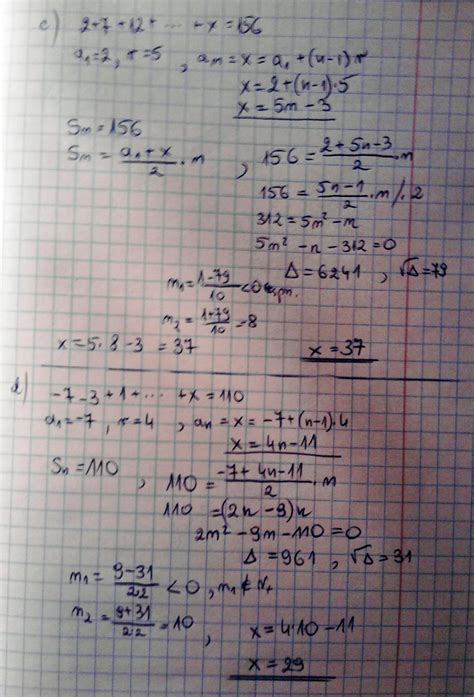 c) 2+7+12+ ... +x=156
a₁=2, r=5, aₙ=x=a₁+(n-1)r
x=2+(n-1)·5
x=5n-3
Sₙ=156
Sₙ=(a₁+x)/2·n, 156=(2+5n-3)/2·n
156=(5n-1)/2·n/·2
312=5n²-n
5n²-n-312=0
Δ=6241, √Δ=79
n₁=(1-79)/10<0
n₂=(1+79)/10=8
x=5·8-3=37
x=37
d) -7-3+1+ ... +x=110
a₁=-7, r=4, aₙ=x=-7+(n-1)·4
x=4n-11
Sₙ=110, 110=(-7+4n-11)/2·n
110=(2n-9)n
2n²-9n-110=0
Δ=961, √Δ=31
n₁=(9-31)/2·2<0, n₁∉N₊
n₂=(9+31)/2·2=10, x=4·10-11
x=29